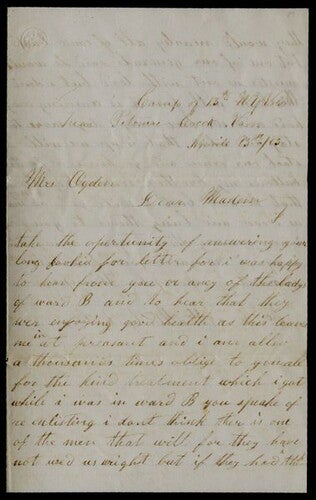 Camp of 13th N.Y. Vol
near Potomac Creek Vam
Aprile 13th/63
Mrs Ogden
Dear Madam
I
take the opportunity of answering your
long looked for letter for i was happy
to hear from you or any of the ladys
of ward B and to hear that they
wer enjoying good health as this leaves
me in at persant and i am allso
a thousands times oblige to you all
for the kind treatment which i got
while i was in ward B you speake of
re enlisting i dont think ther is one
of the men that will for they have
not used us wright but if they had